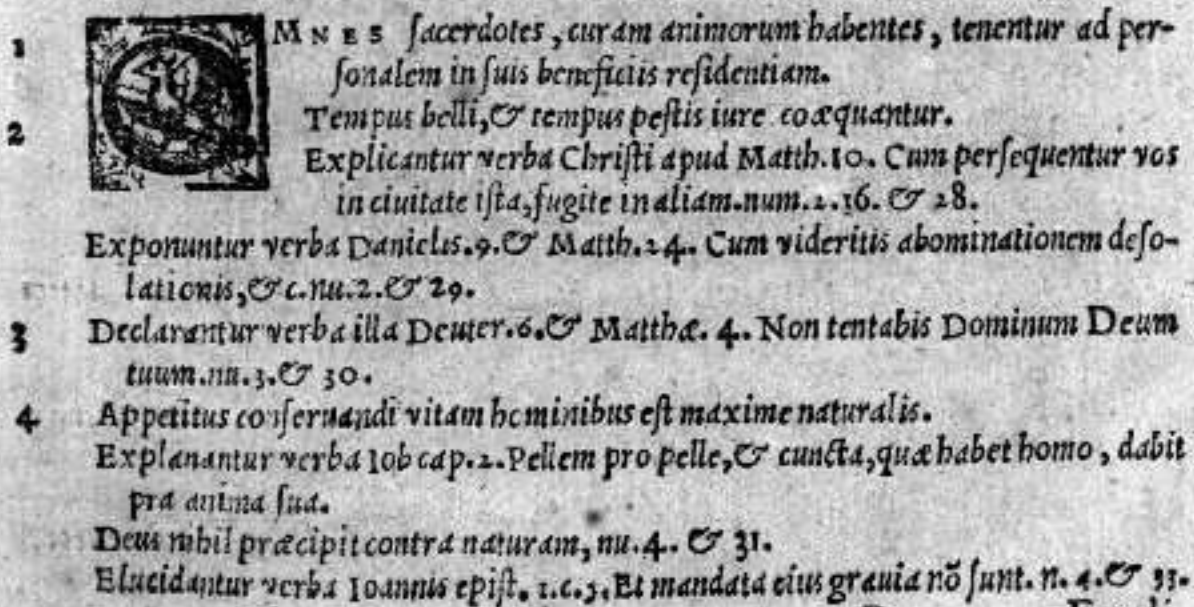 1 OMNES sacerdotes, curam animorum habentes, tenentur ad per-
sonalem in suis beneficiis residentiam.
2 Tempus belli, & tempus pestis iure coæquantur.
Explicantur verba Christi apud Matth. 10. Cum persequentur vos
in ciuitate ista, fugite in aliam. num. 2. 16. & 28.
Exponuntur verba Danielis. 9. & Matth. 24. Cum videritis abominationem deso-
lationis, & c. nu. 2. & 29.
3 Declarantur verba illa Deuter. 6. & Matthæ. 4. Non tentabis Dominum Deum
tuum. nu. 3. & 30.
4 Appetitus conseruandi vitam hominibus est maxime naturalis.
Explanantur verba Iob cap. 2. Pellem pro pelle, & cuncta, quæ habet homo, dabit
pra anima sua.
Deus nihil præcipit contra naturam, nu. 4. & 31.
Elucidantur verba Ioannis epist. 1. c. 5. Et mandata eius grauia nō sunt. n. 4. & 33.